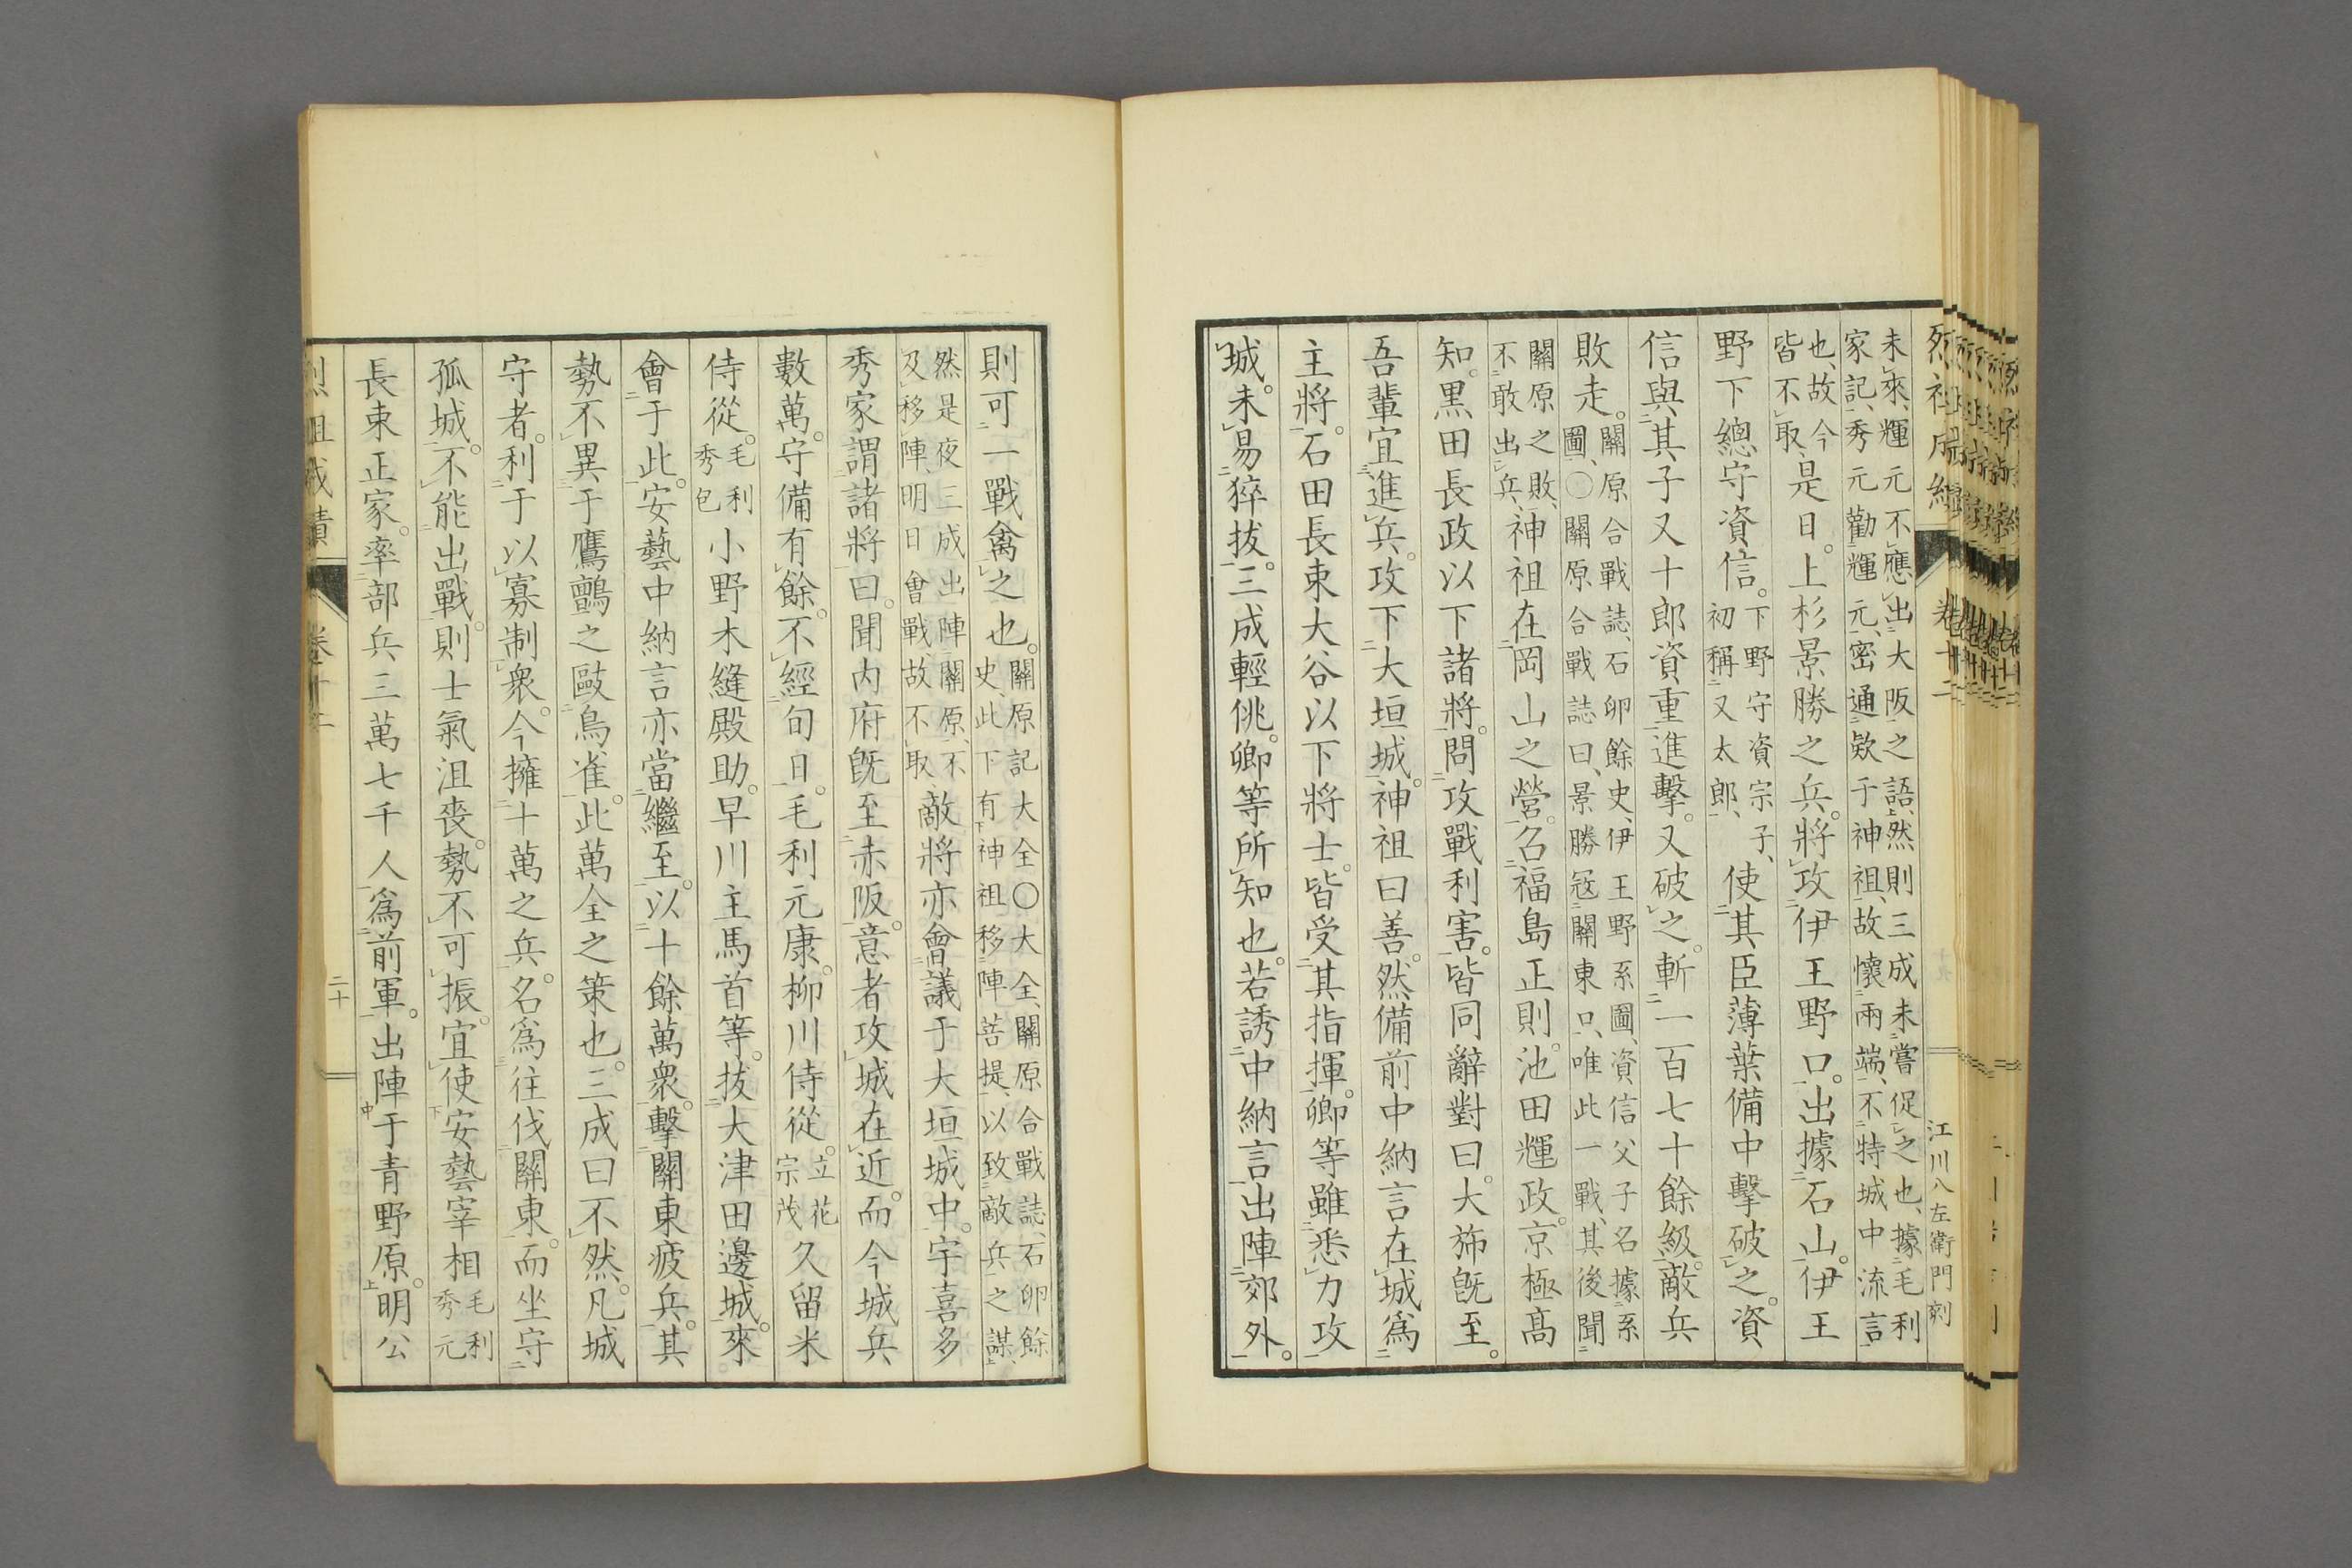 未來、輝元不應出大阪之語、然則三成未嘗促之也、據毛利
家記、秀元勸輝元、密通欵于神祖、故懷兩端、不特城中流言
也、故今
皆不取、是日。上杉景勝之兵。將攻伊王野口。出據石山。伊王
野下總守資信。下野守資宗子、
初稱又太郎、使其臣薄葉備中擊破之。資
信與其子又十郎資重進擊。又破之。斬一百七十餘級。敵兵
敗走。關原合戰誌、石卵餘史、伊王野系圖、資信父子名據系
圖、○關原合戰誌曰、景勝冦關東只、唯此一戰、其後聞
關原之敗、
不敢出兵、神祖在岡山之營。名福島正則。池田輝政。京極高
知。黒田長政以下諸將。問攻戰利害。皆同辭對曰。大斾旣至。
吾輩宜進兵。攻下大垣城。神祖曰善。然備前中納言在城爲
主將。石田長束大谷以下將士。皆受其指揮。卿等雖悉力攻
城。未易猝拔。三成輕佻。卿等所知也。若誘中納言出陣郊外。
江川八左衛門刻
則可一戰禽之也。關原記大全○大全、關原合戰誌、石卵餘
史、此下有神祖移陣菩提、以致敵兵之謀、
然是夜三成出陣關原、不
及移陣、明日會戰、故不取敵將亦會議于大垣城中。宇喜多
秀家謂諸將曰。聞内府旣至赤阪。意者攻城在近。而今城兵
數萬。守備有餘。不經旬日。毛利元康。柳川侍從。立花
宗茂。久留米
侍從。毛利
秀包小野木縫殿助。早川主馬首等。拔大津田邊城。來。
會于此。安藝中納言亦當繼至。以十餘萬衆。擊關東疲兵。其
勢不異于鷹鸇之毆鳥雀。此萬全之策也。三成曰不然。凡城
守者。利于以寡制衆。今擁十萬之兵。名爲往伐關東。而坐守
孤城。不能出戰。則士氣沮喪。勢不可振。宜使安藝宰相毛利
秀元
長束正家。率部兵三萬七千人爲前軍。出陣于青野原。明公
二十